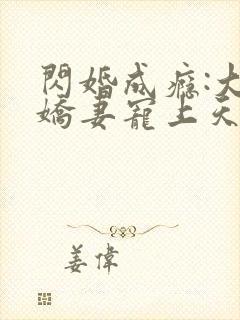 閃婚成癮:大
嬌妻寵上天
姜偉